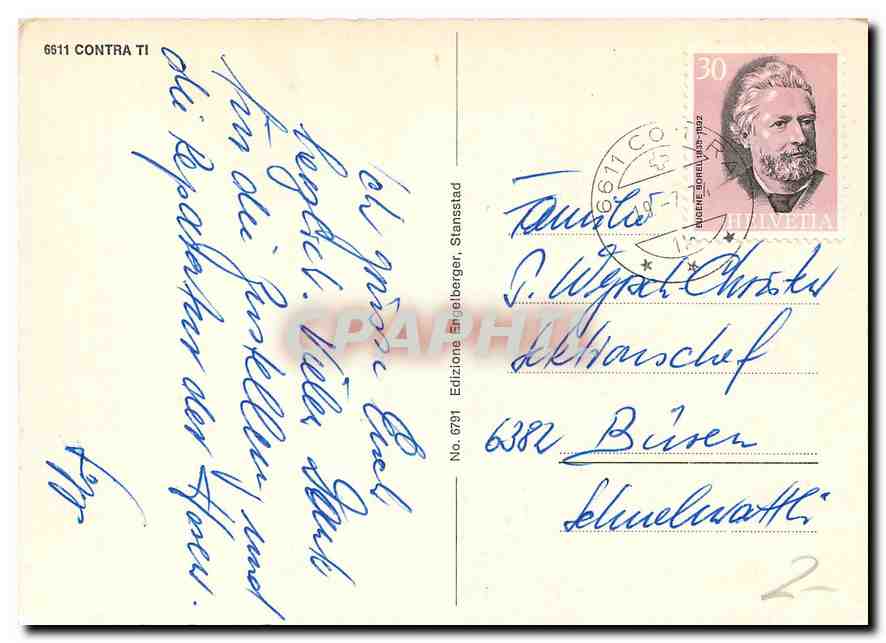 6611 CONTRA TI
Ich grüsse Euch
herzlich. Vielen Dank
für die Zustellung und
die Reparatur der Hosen.
No. 6791 Edizione Engelberger, Stansstad
30
EUGÈNE BOREL 1835-1892
HELVETIA
6611 CO RA
Familie
P. Wyrsch-Christen
Sektionschef
6382 Büren
Schmelzmattli
2-
CPAPHIL